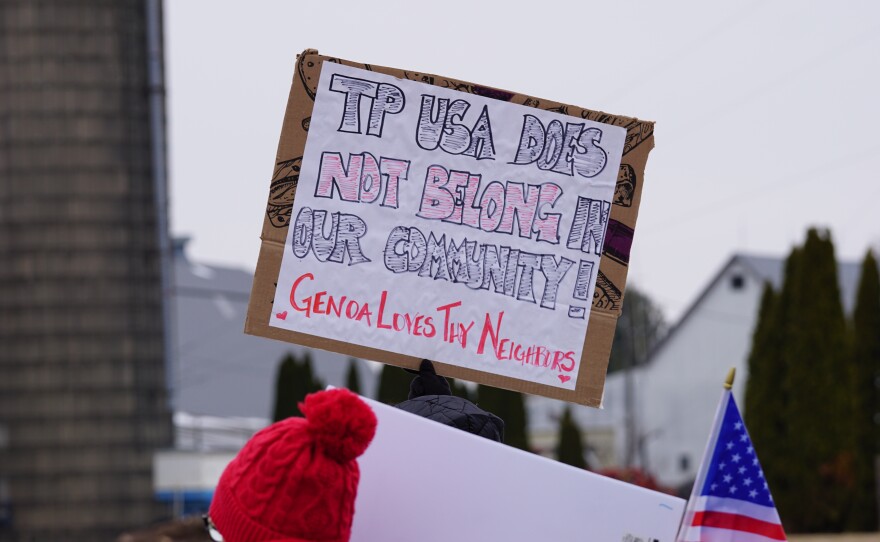 TP USA DOES
NOT BELONG IN
OUR COMMUNITY!
GENOA LOVES THY NEIGHBORS